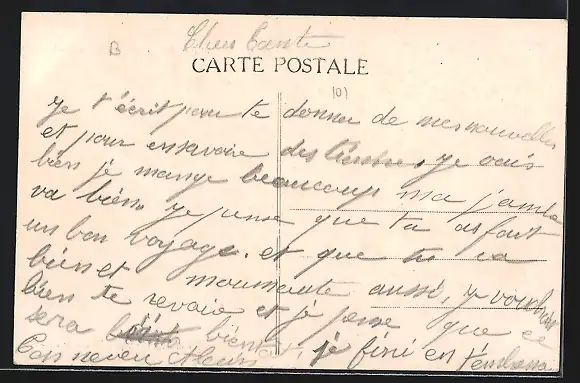 B
Cher Tante
CARTE POSTALE
101
Je t'écrit pour te donner de mes nouvelles
et pour en savoire des tiennes. Je vais
bien je mange beaucoup ma jambe
va bien. Je pense que ta as fait
un bon voyage. et que tu va
bien et mousmoute aussi, je voudrais
bien te revoire et je pense que ce
sera bientôt, je fini en t'embrassant
Ton neveu